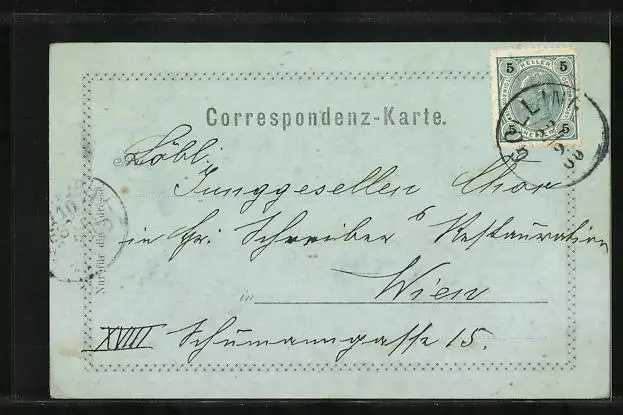 5 HELLER 5
5 5
Correspondenz-Karte.
An
Löbl.
Junggesellen Chor
in Gr. Schreiber's Restauration
in Wien
XVIII Schumanngasse 15.
Nur für die Adresse